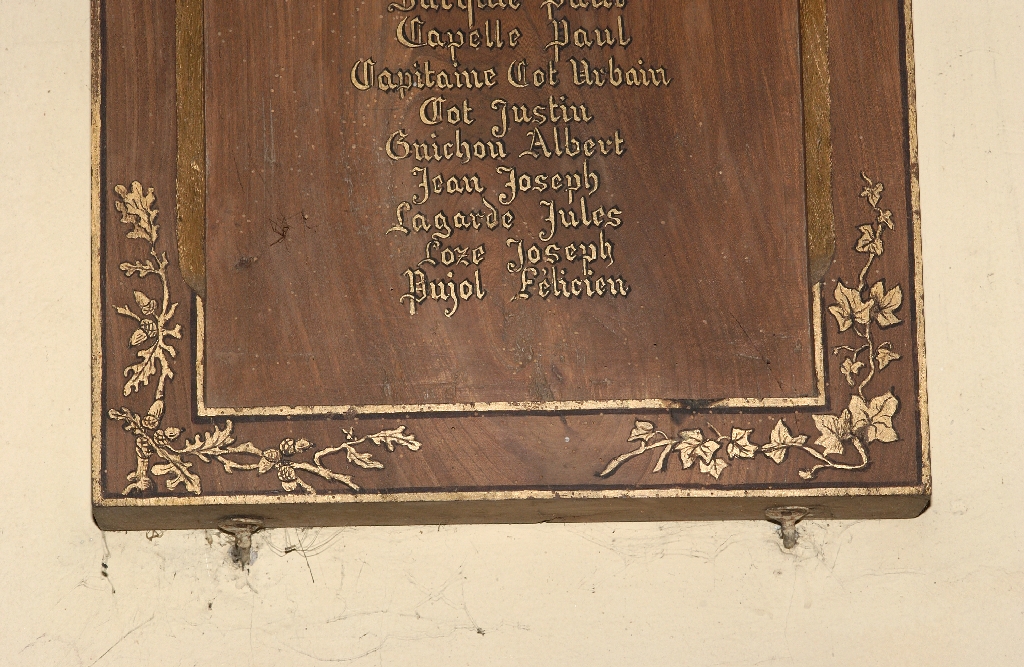 Paul
Capelle Paul
Capitaine Cot Urbain
Cot Justin
Guichou Albert
Jean Joseph
Lagarde Jules
Loze Joseph
Pujol Félicien